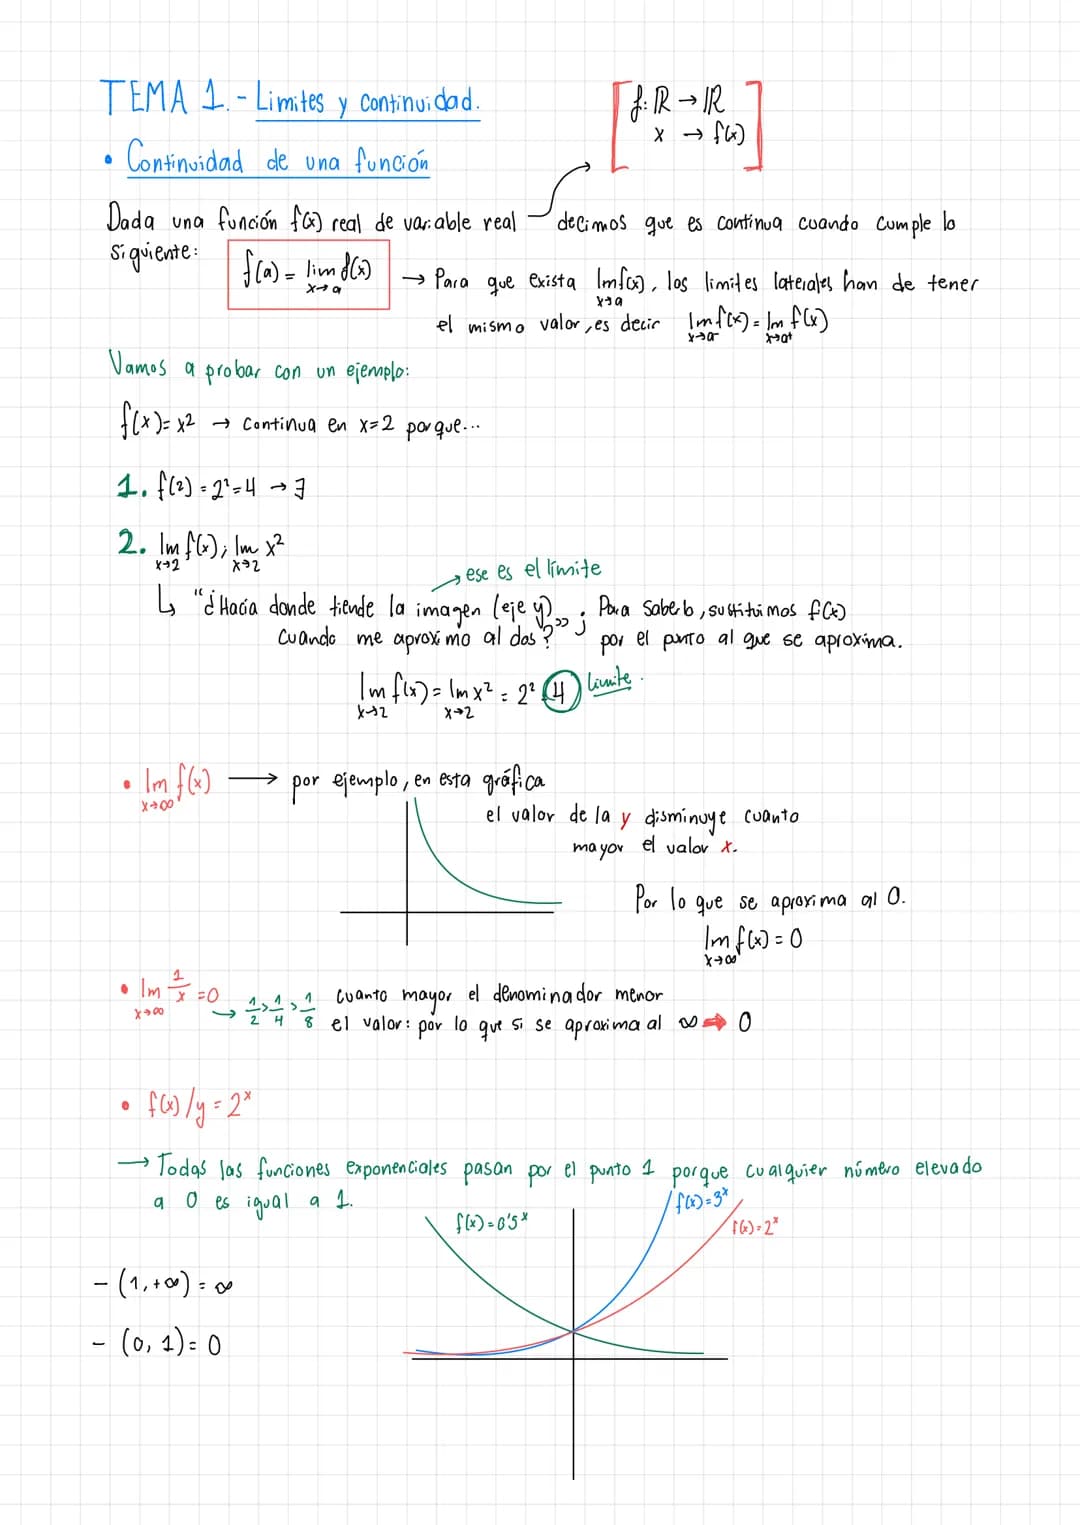 TEMA 1.- Limites y continuidad.
[f: ℝ → ℝ
x → f(x)]
• Continuidad de una función
Dada una función f(x) real de variable real decimos que es continua cuando cumple lo
siguiente:
f(a) = lim f(x)
x→a
→ Para que exista lim f(x), los limites laterales han de tener
x→a
el mismo valor, es decir lim f(x) = lim f(x)
x→a⁻ x→a⁺
Vamos a probar con un ejemplo:
f(x) = x² → Continua en x=2 porque...
1. f(2) = 2² = 4 → ∃
2. lim f(x); lim x²
x→2 x→2
→ ese es el límite
↳ "¿Hacia donde tiende la imagen (eje y)
cuando me aproximo al dos?" ; Para saberlo, sustituimos f(x)
por el punto al que se aproxima.
lim f(x) = lim x² = 2² 4 limite.
x→2 x→2
• lim f(x) → por ejemplo, en esta gráfica
x→∞
el valor de la y disminuye cuanto
mayor el valor x.
Por lo que se aproxima al 0.
lim f(x) = 0
x→∞
• lim 1/x = 0
x→∞
→ 1/2 > 1/4 > 1/8 cuanto mayor el denominador menor
el valor: por lo que si se aproxima al ∞ → 0
• f(x)/y = 2ˣ
→ Todas las funciones exponenciales pasan por el punto 1 porque cualquier número elevado
a 0 es igual a 1.
f(x) = 3ˣ
f(x) = 0'5ˣ
f(x) = 2ˣ
- (1, +∞) = ∞
- (0, 1) = 0